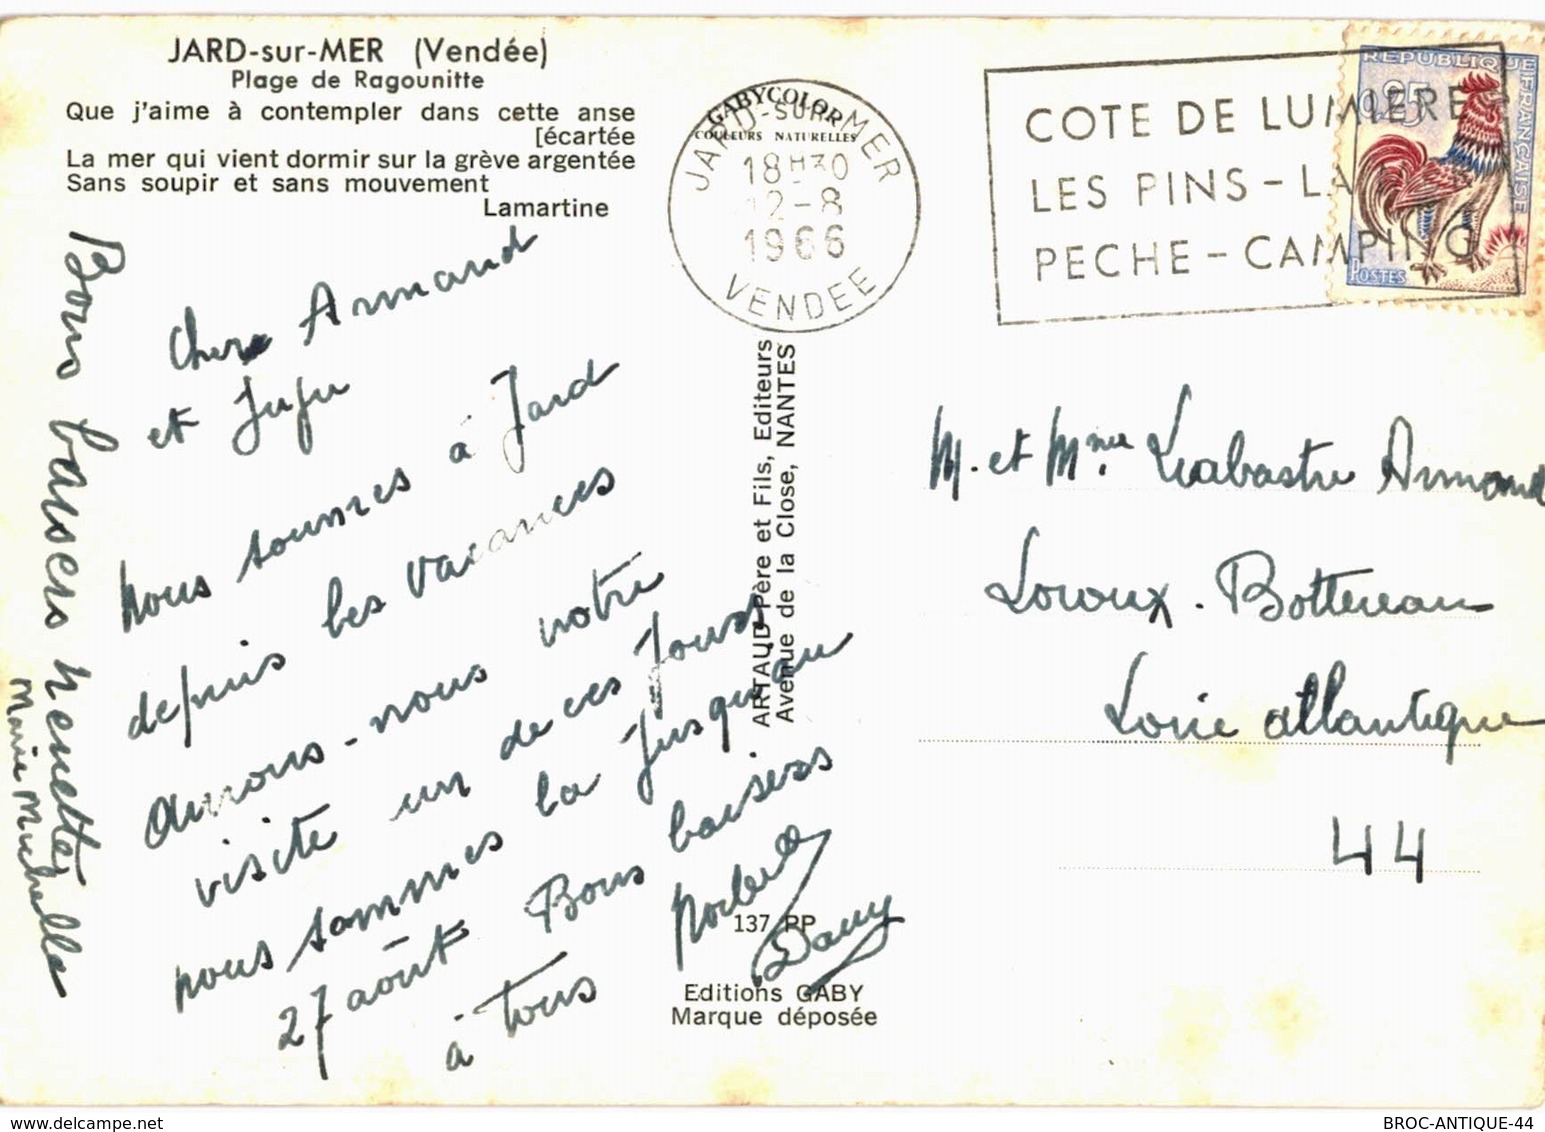 JARD-sur-MER (Vendée)
Plage de Ragounitte
Que j'aime à contempler dans cette anse
[écartée
La mer qui vient dormir sur la grève argentée
Sans soupir et sans mouvement
Lamartine
Chers Armand
et Juju
nous sommes à Jard
depuis les vacances
aurons-nous votre
visite un de ces jours
nous sommes la jusqu'au
27 août Bons baisers
à tous
Norbert
Dany
Bons baisers
Marie Michelle
GABYCOLOR
COULEURS NATURELLES
JARD-SUR-MER
18H30
12-8
1966
VENDEE
COTE DE LUMIERE
LES PINS - LA
PECHE - CAMPING
REPUBLIQUE FRANÇAISE
0,25
POSTES
ARTAUD Père et Fils, Editeurs
Avenue de la Close, NANTES
137 PP
Editions GABY
Marque déposée
M. et Mme Armand
Loroux-Bottereau
Loire atlantique
44
BROC-ANTIQUE-44